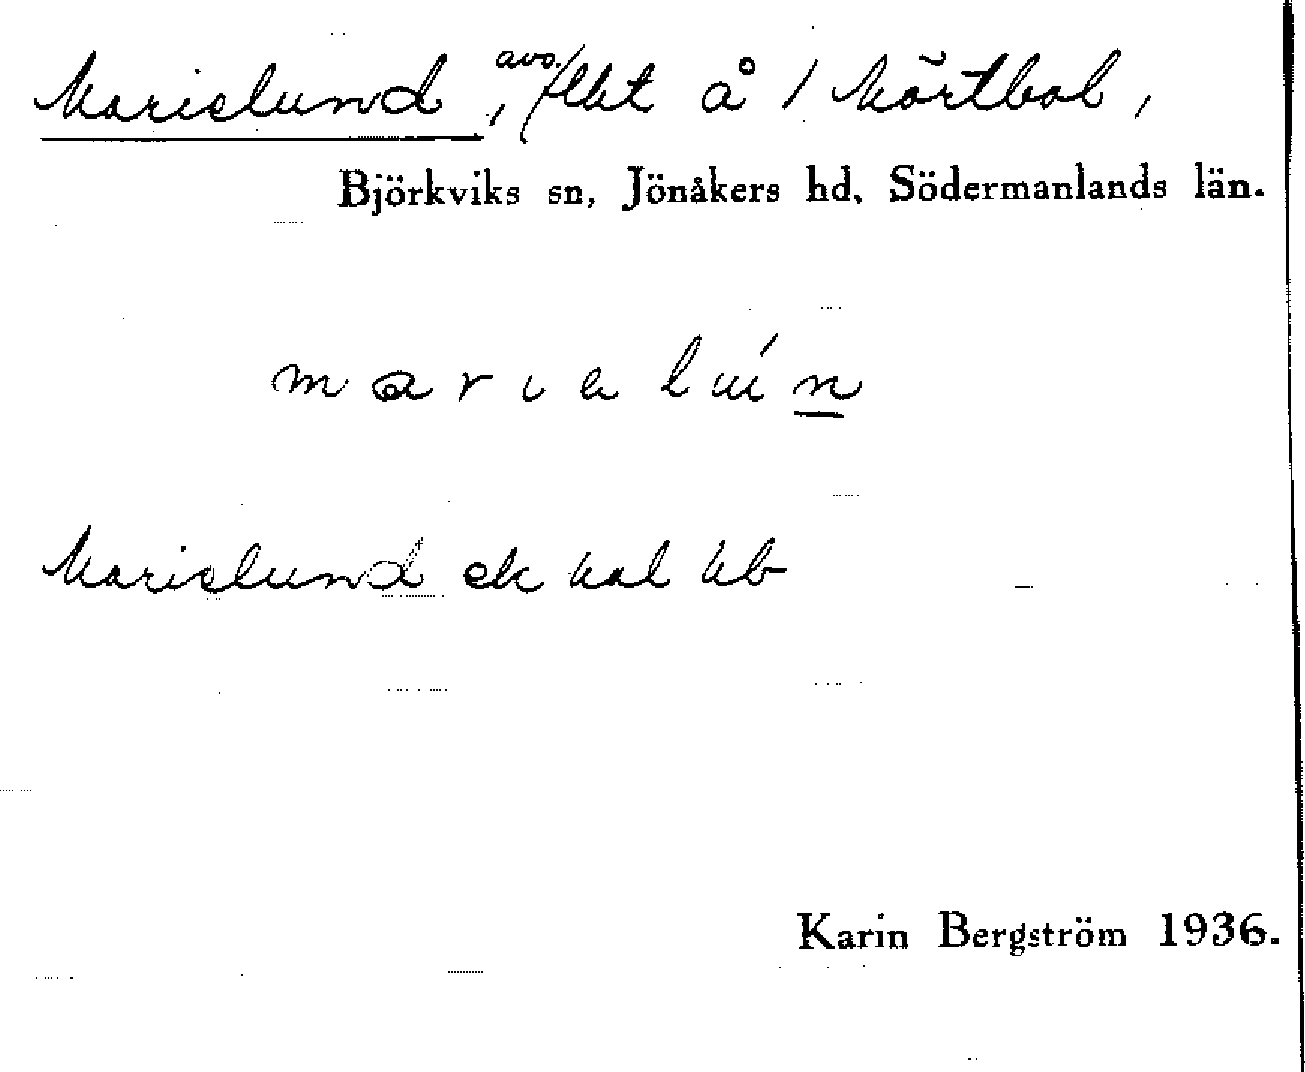 Marielund, avs./lht å 1 Mörtbol,
Björkviks sn, Jönåkers hd, Södermanlands län.
m a r ɩ e l ú n
Marielund ek kal hb
Karin Bergström 1936.